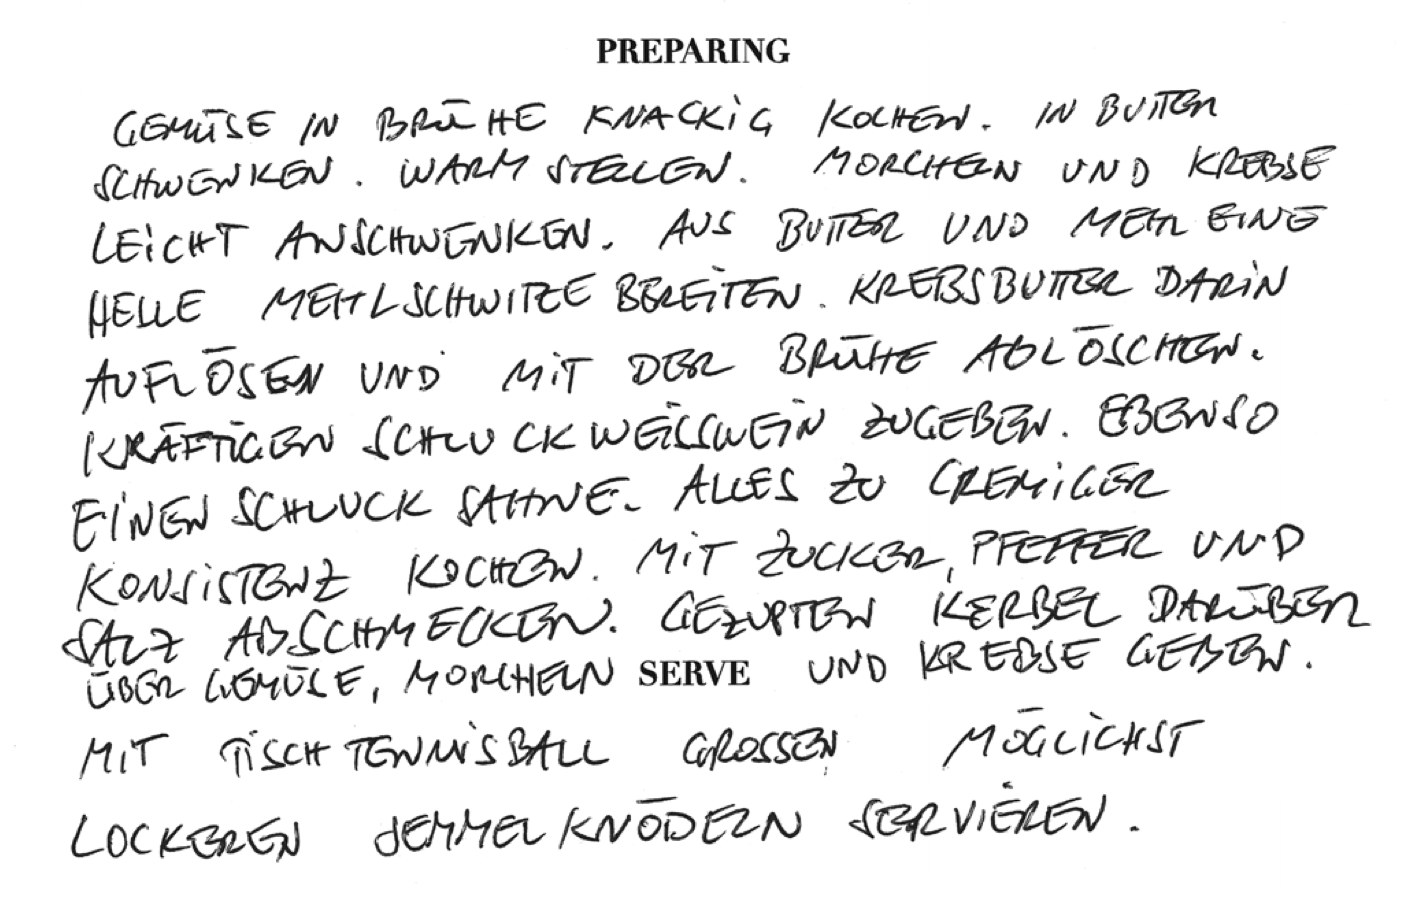 PREPARING
GEMÜSE IN BRÜHE KNACKIG KOCHEN. IN BUTTER
SCHWENKEN. WARM STELLEN. MORCHELN UND KREBSE
LEICHT ANSCHWENKEN. AUS BUTTER UND MEHL EINE
HELLE MEHLSCHWITZE BEREITEN. KREBSBUTTER DARIN
AUFLÖSEN UND MIT DER BRÜHE ABLÖSCHEN.
KRÄFTIGEN SCHLUCK WEISSWEIN ZUGEBEN. EBENSO
EINEN SCHLUCK SAHNE. ALLES ZU CREMIGER
KONSISTENZ KOCHEN. MIT ZUCKER, PFEFFER UND
SALZ ABSCHMECKEN. GEZUPTEN KERBEL DARÜBER
ÜBER GEMÜSE, MORCHELN SERVE UND KREBSE GEBEN.
MIT TISCHTENNISBALL GROSSEN MÖGLICHST
LOCKEREN SEMMELKNÖDELN SERVIEREN.